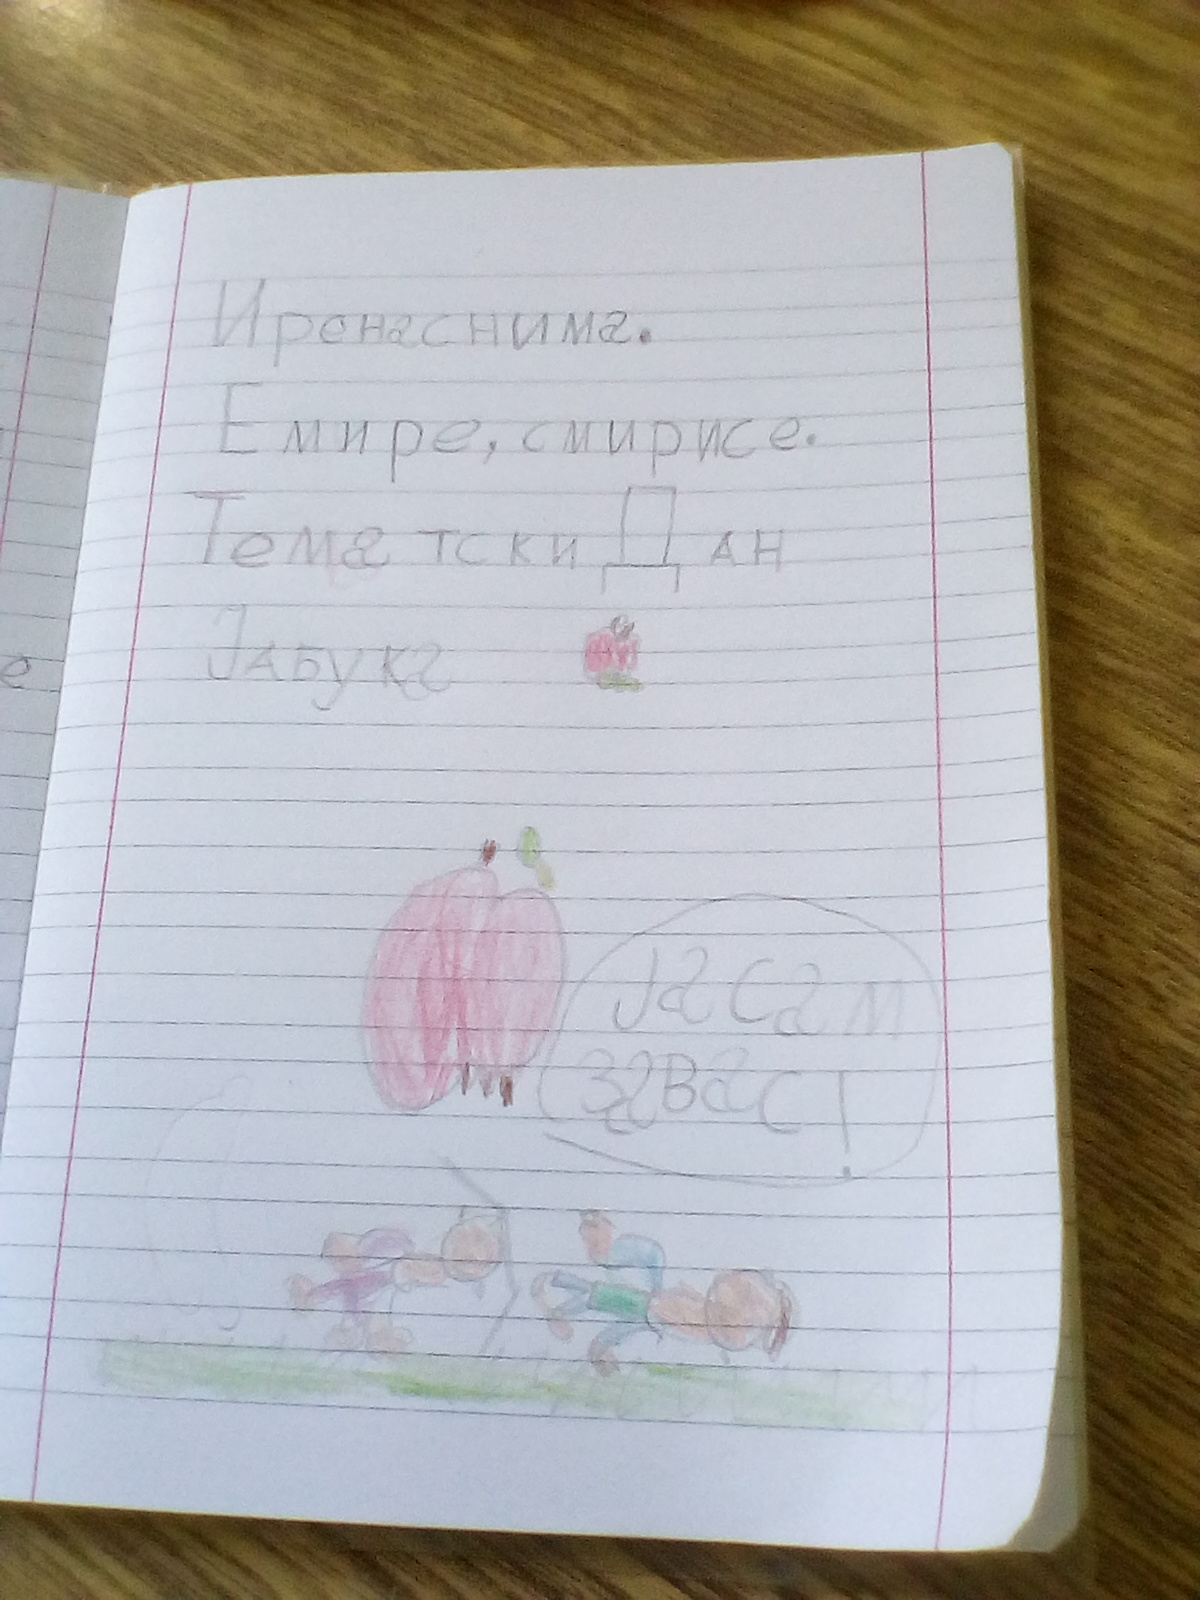 Иренаснима.
Емире, смирисе.
Тематски Дан
Јабука
Јасам
завас!